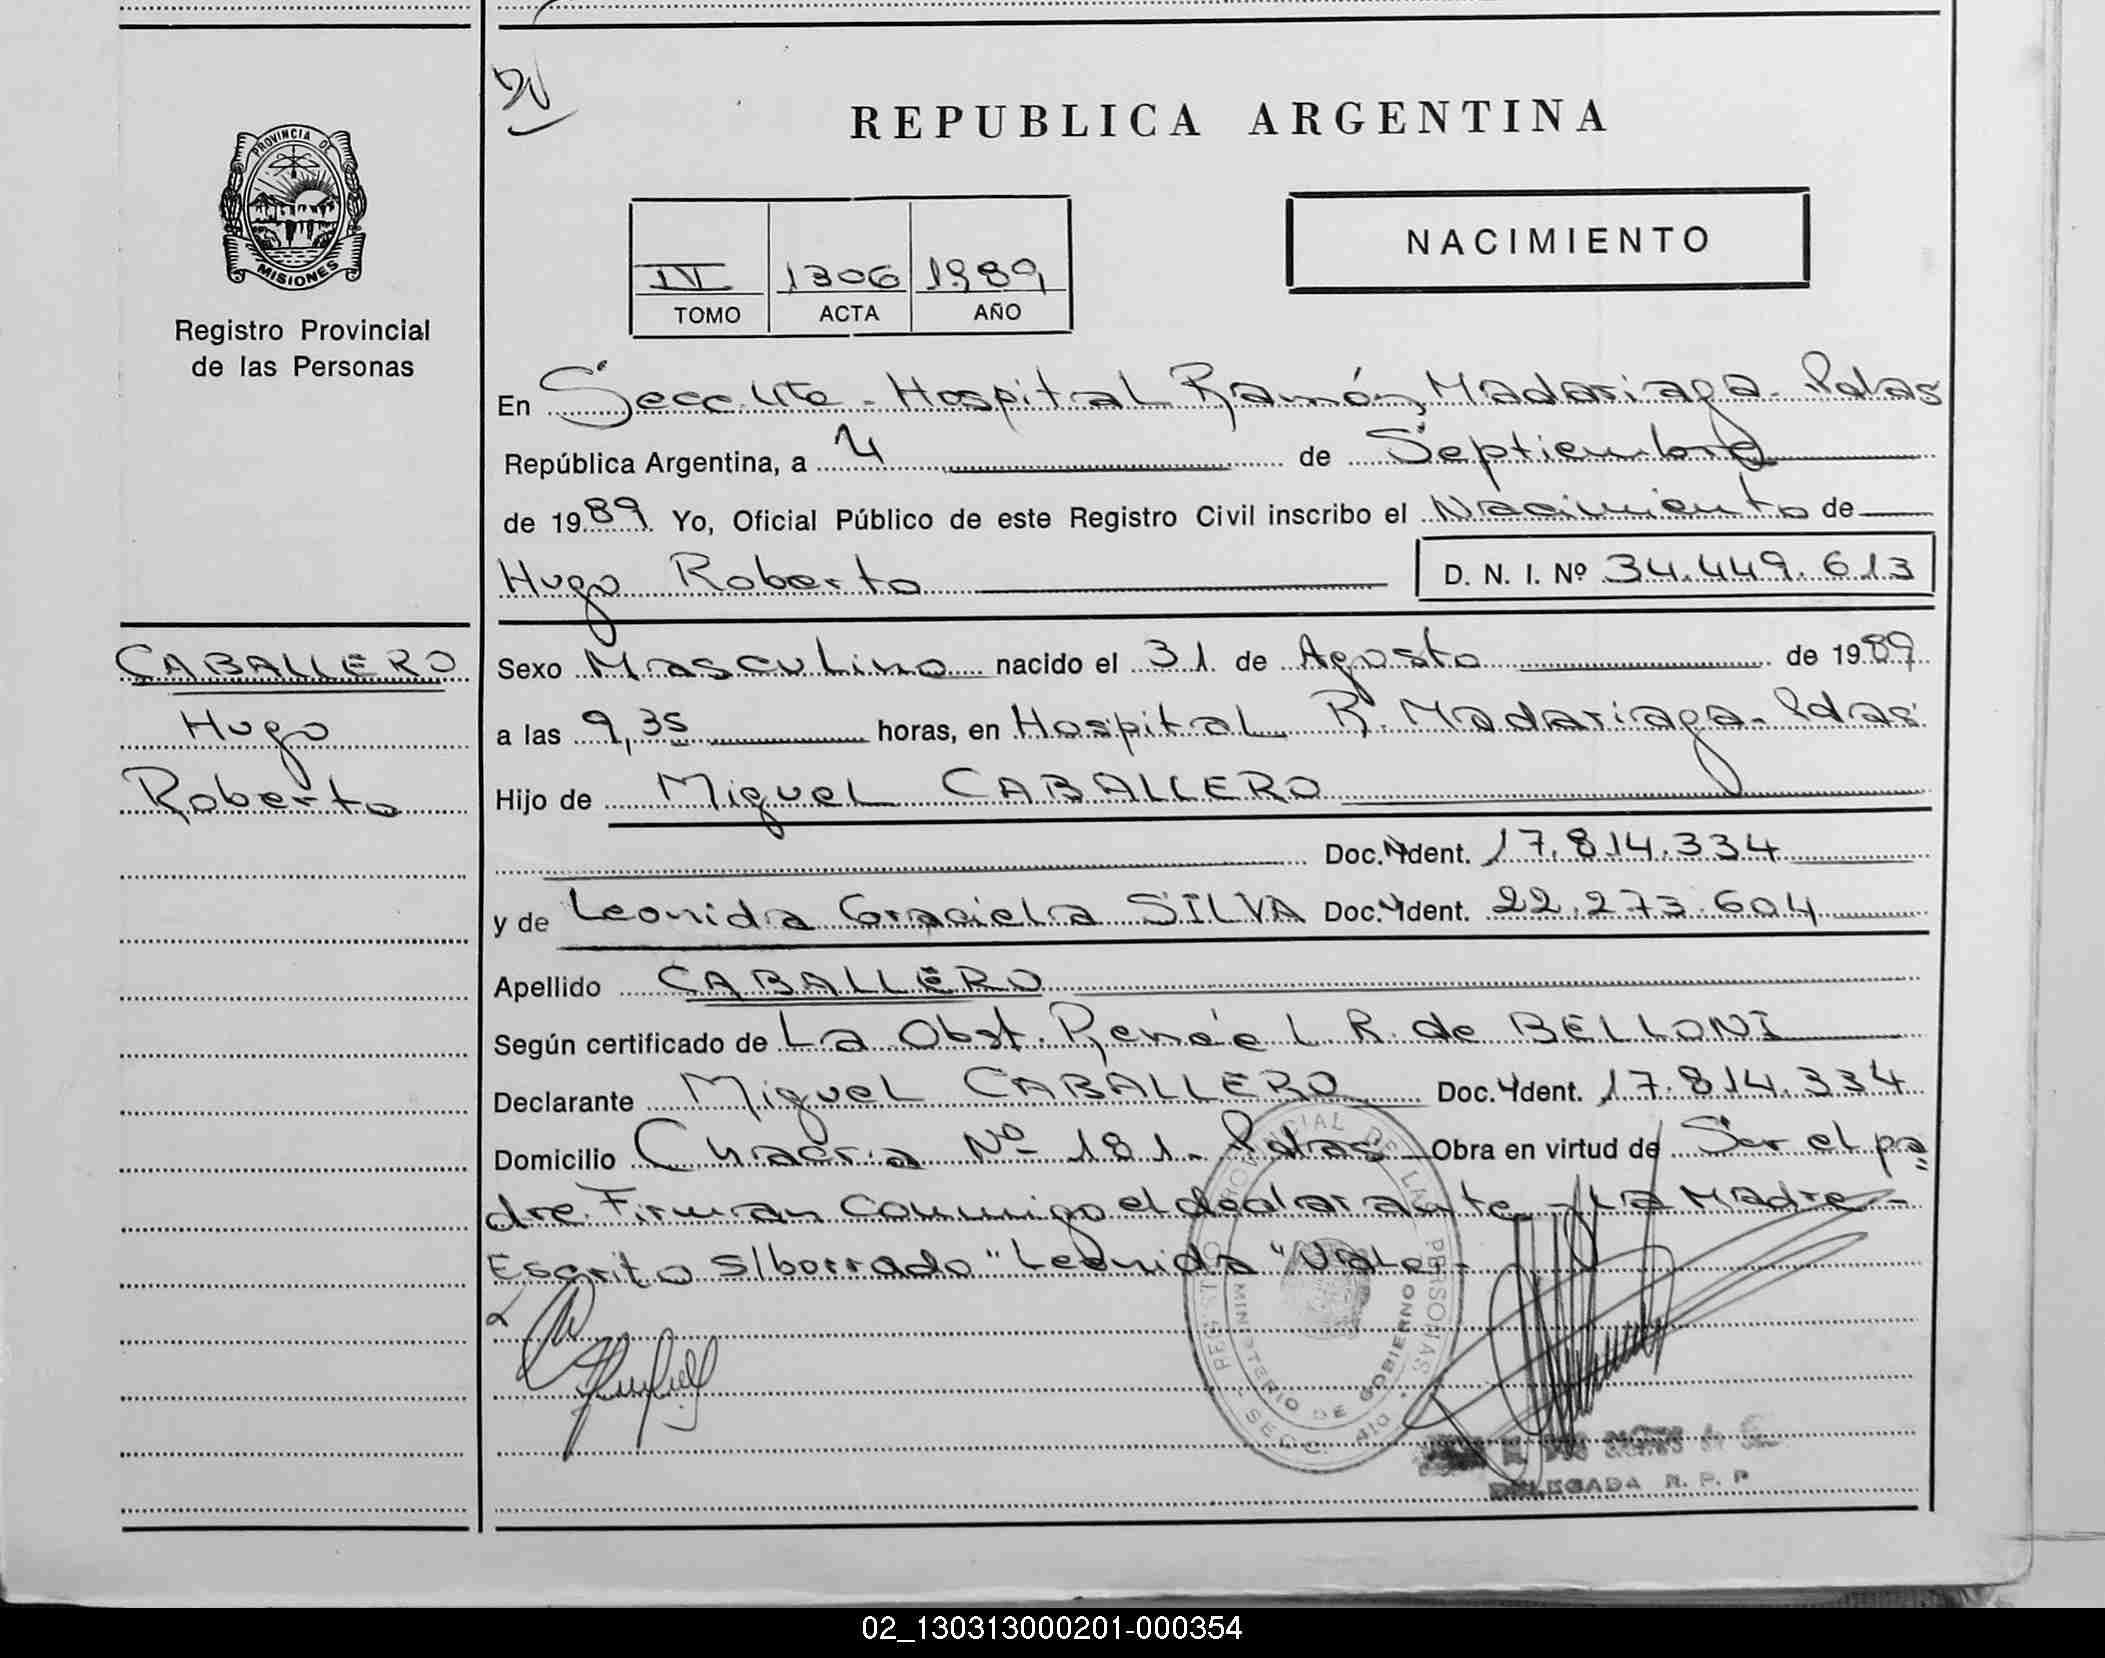 PROVINCIA DE
MISIONES
Registro Provincial
de las Personas
REPUBLICA ARGENTINA
NACIMIENTO
IV 1306 1989
TOMO ACTA AÑO
En Secc. Hospital Ramón Madariaga - Pdas
República Argentina, a 4 de Septiembre
de 1989 Yo, Oficial Público de este Registro Civil inscribo el Nacimiento de
Hugo Roberto D. N. I. Nº 34.449.613
CABALLERO
Hugo
Roberto
Sexo Masculino nacido el 31 de Agosto de 1989
a las 9,35 horas, en Hospital R. Madariaga - Pdas
Hijo de Miguel CABALLERO
Doc. Ident. 17.814.334
y de Leonida Graciela SILVA Doc. Ident. 22.273.604
Apellido CABALLERO
Según certificado de La Obst. Renée L R. de BELLONI
Declarante Miguel CABALLERO Doc. Ident. 17.814.334
Domicilio Chacra Nº 181 - Pdas Obra en virtud de Ser el pa=
dre. Firman conmigo el declarante y La Madre -
Escrito s/borrado "Leonida" Vale -
REGISTRO PROVINCIAL DE LAS PERSONAS
MINISTERIO DE GOBIERNO
SECC. 410
DELEGADA R. P. P
02_130313000201-000354